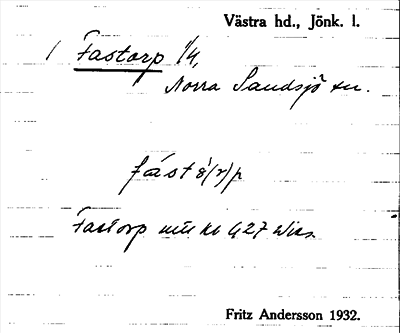 Västra hd., Jönk. l.
/ Fastorp 1/4,
Norra Sandsjö sn.
fást
Fastorp
Fritz Andersson 1932.